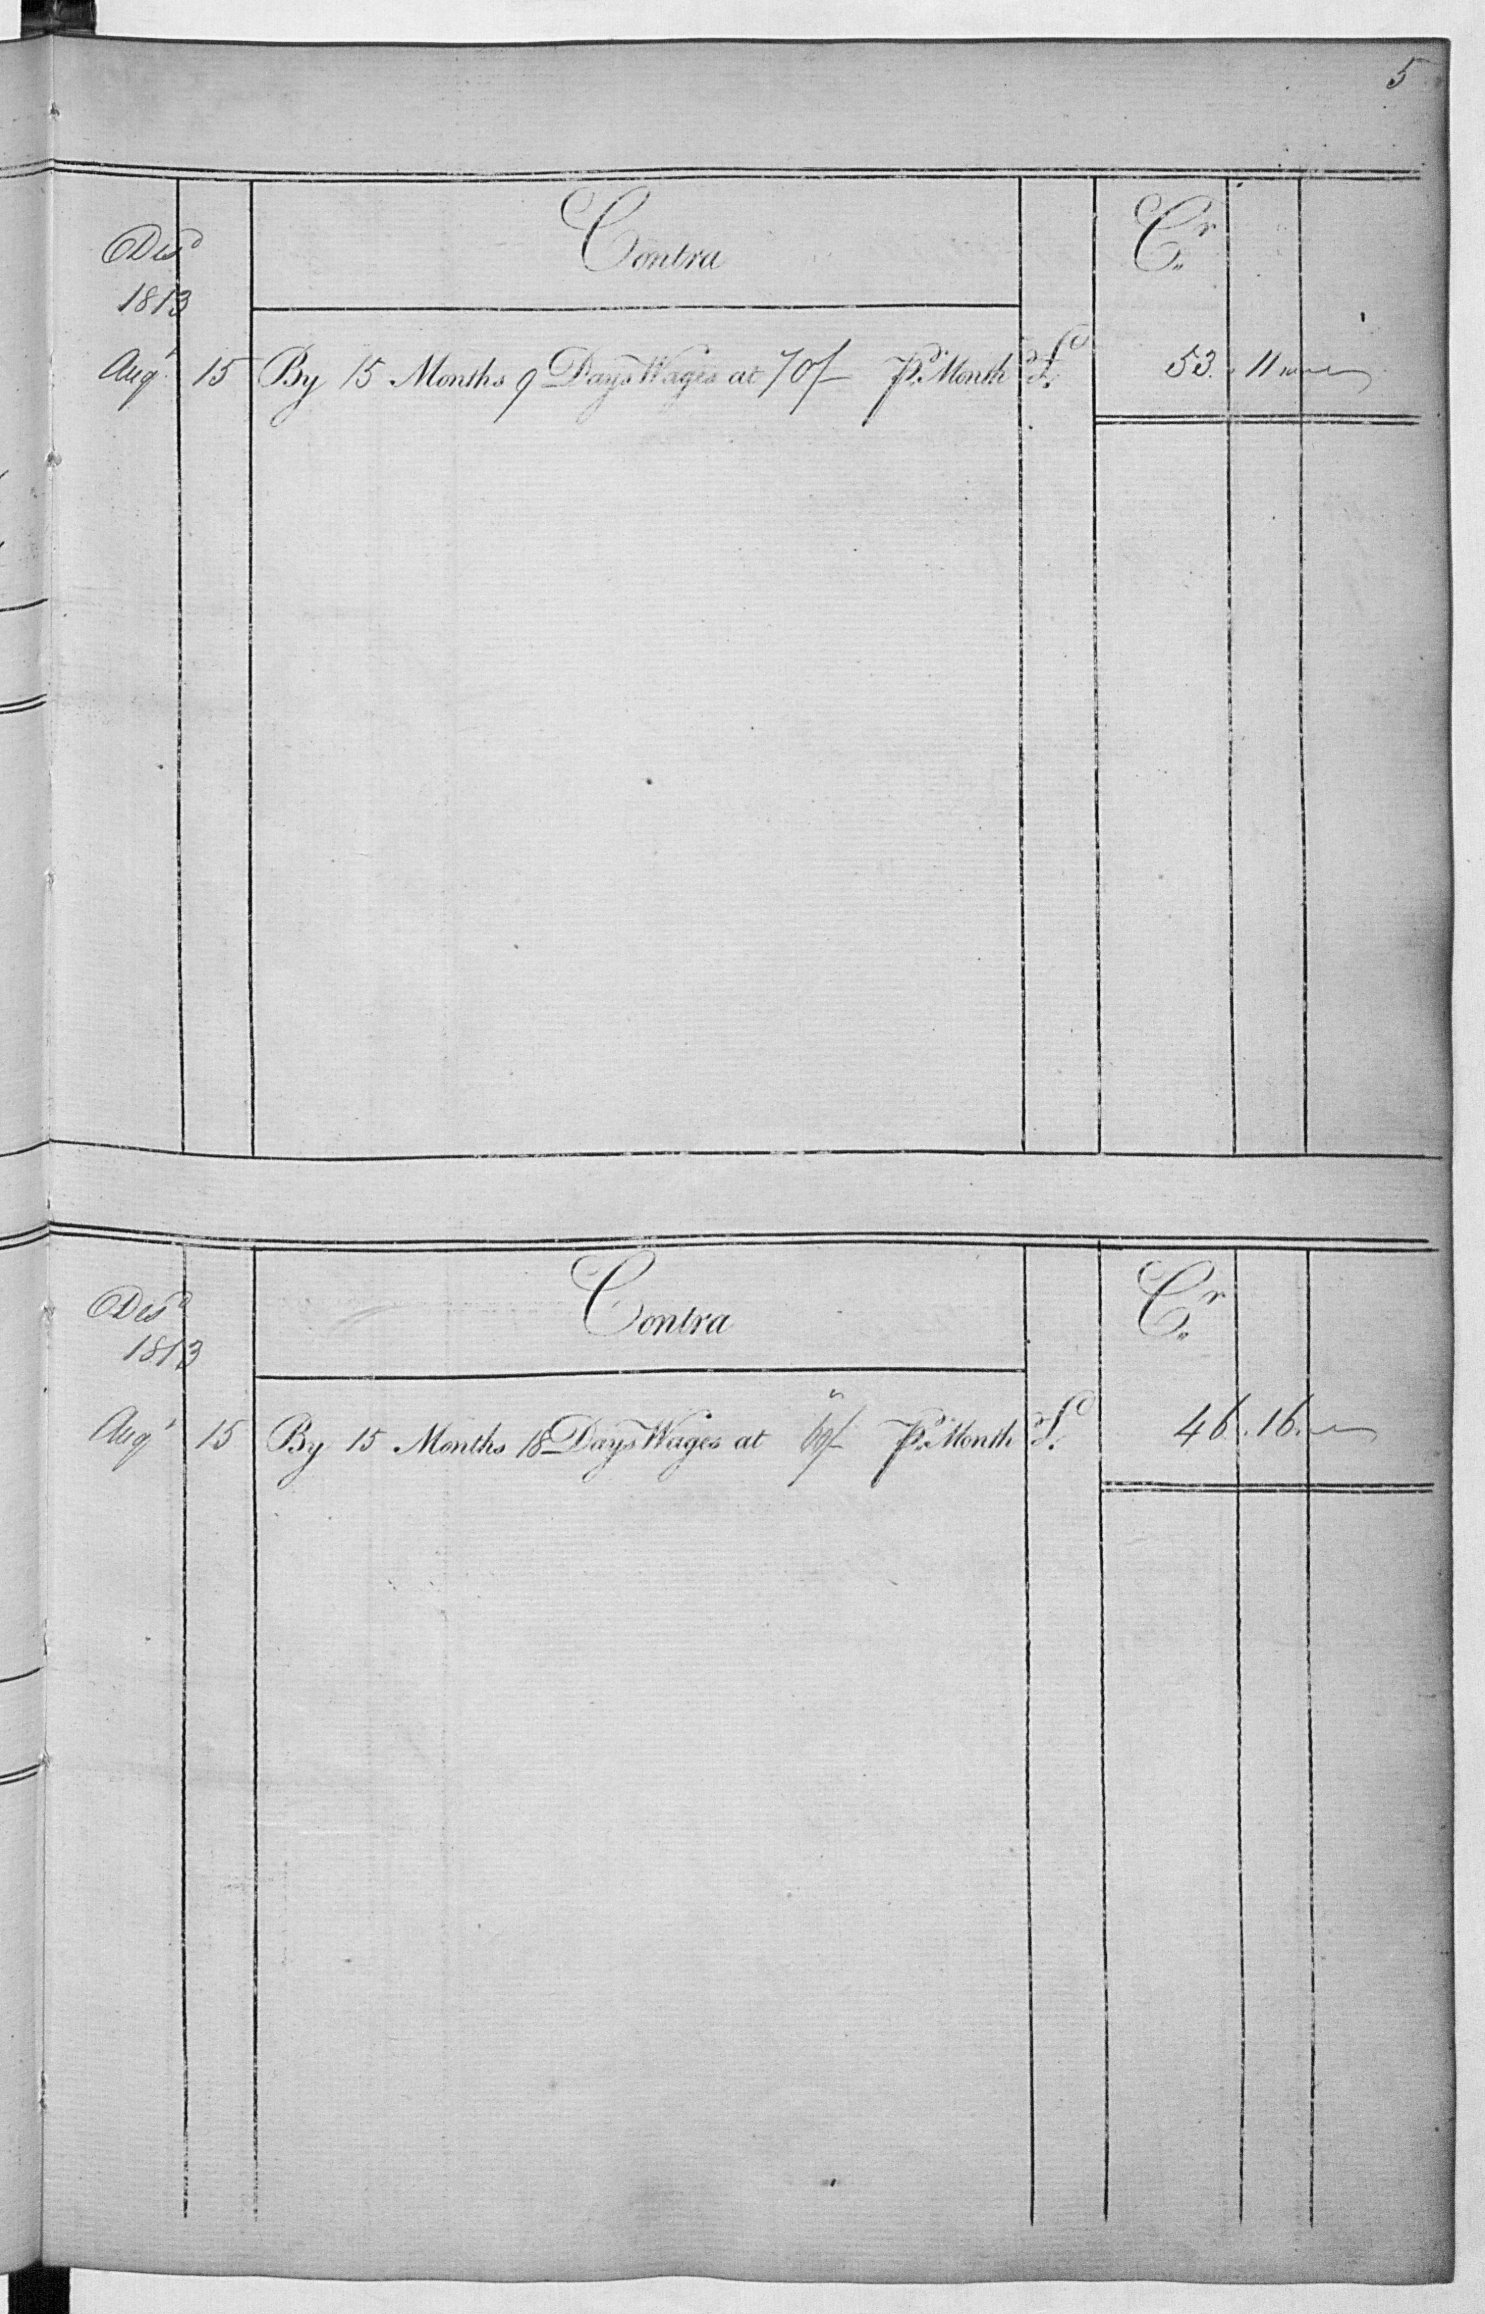 5
Contra Cr
Desd
1813
Augt 15 By 15 Months 9 Days Wages at 70/- Pr. Month £ 53 . 11 "
Contra Cr
Desd
1813
Augt 15 By 15 Months 18 Days Wages at 60/- Pr. Month £ 46 . 16 "